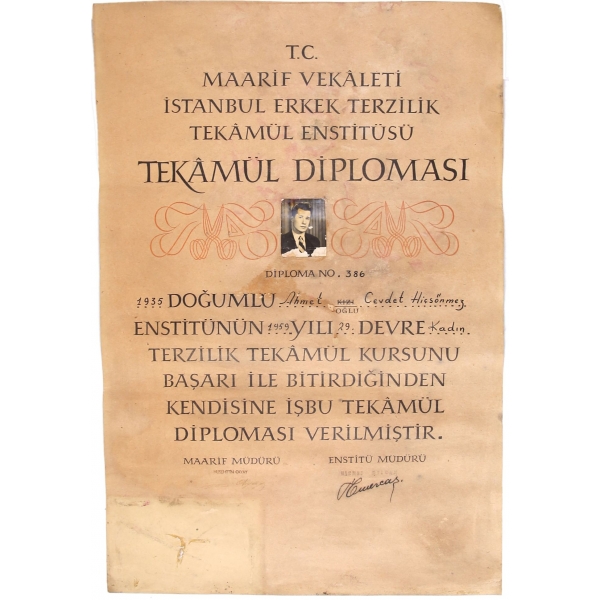 T.C.
MAARİF VEKÂLETİ
İSTANBUL ERKEK TERZİLİK
TEKÂMÜL ENSTİTÜSÜ
TEKÂMÜL DİPLOMASI
DİPLOMA NO. 386
1935 DOĞUMLU Ahmet OĞLU Cevdet Hiçsönmez
ENSTİTÜNÜN 1959 YILI 29. DEVRE Kadın
TERZİLİK TEKÂMÜL KURSUNU
BAŞARI İLE BİTİRDİĞİNDEN
KENDİSİNE İŞBU TEKÂMÜL
DİPLOMASI VERİLMİŞTİR.
MAARİF MÜDÜRÜ ENSTİTÜ MÜDÜRÜ